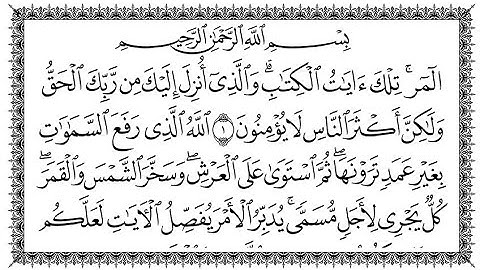 بِسْمِ ٱللَّهِ ٱلرَّحْمَٰنِ ٱلرَّحِيمِ
الٓمٓرۚ تِلْكَ ءَايَٰتُ ٱلْكِتَٰبِۗ وَٱلَّذِىٓ أُنزِلَ إِلَيْكَ مِن رَّبِّكَ ٱلْحَقُّ
وَلَٰكِنَّ أَكْثَرَ ٱلنَّاسِ لَا يُؤْمِنُونَ ١ ٱللَّهُ ٱلَّذِى رَفَعَ ٱلسَّمَٰوَٰتِ
بِغَيْرِ عَمَدٍ تَرَوْنَهَاۖ ثُمَّ ٱسْتَوَىٰ عَلَى ٱلْعَرْشِۖ وَسَخَّرَ ٱلشَّمْسَ وَٱلْقَمَرَۖ
كُلٌّ يَجْرِى لِأَجَلٍ مُّسَمًّىۚ يُدَبِّرُ ٱلْأَمْرَ يُفَصِّلُ ٱلْءَايَٰتِ لَعَلَّكُم